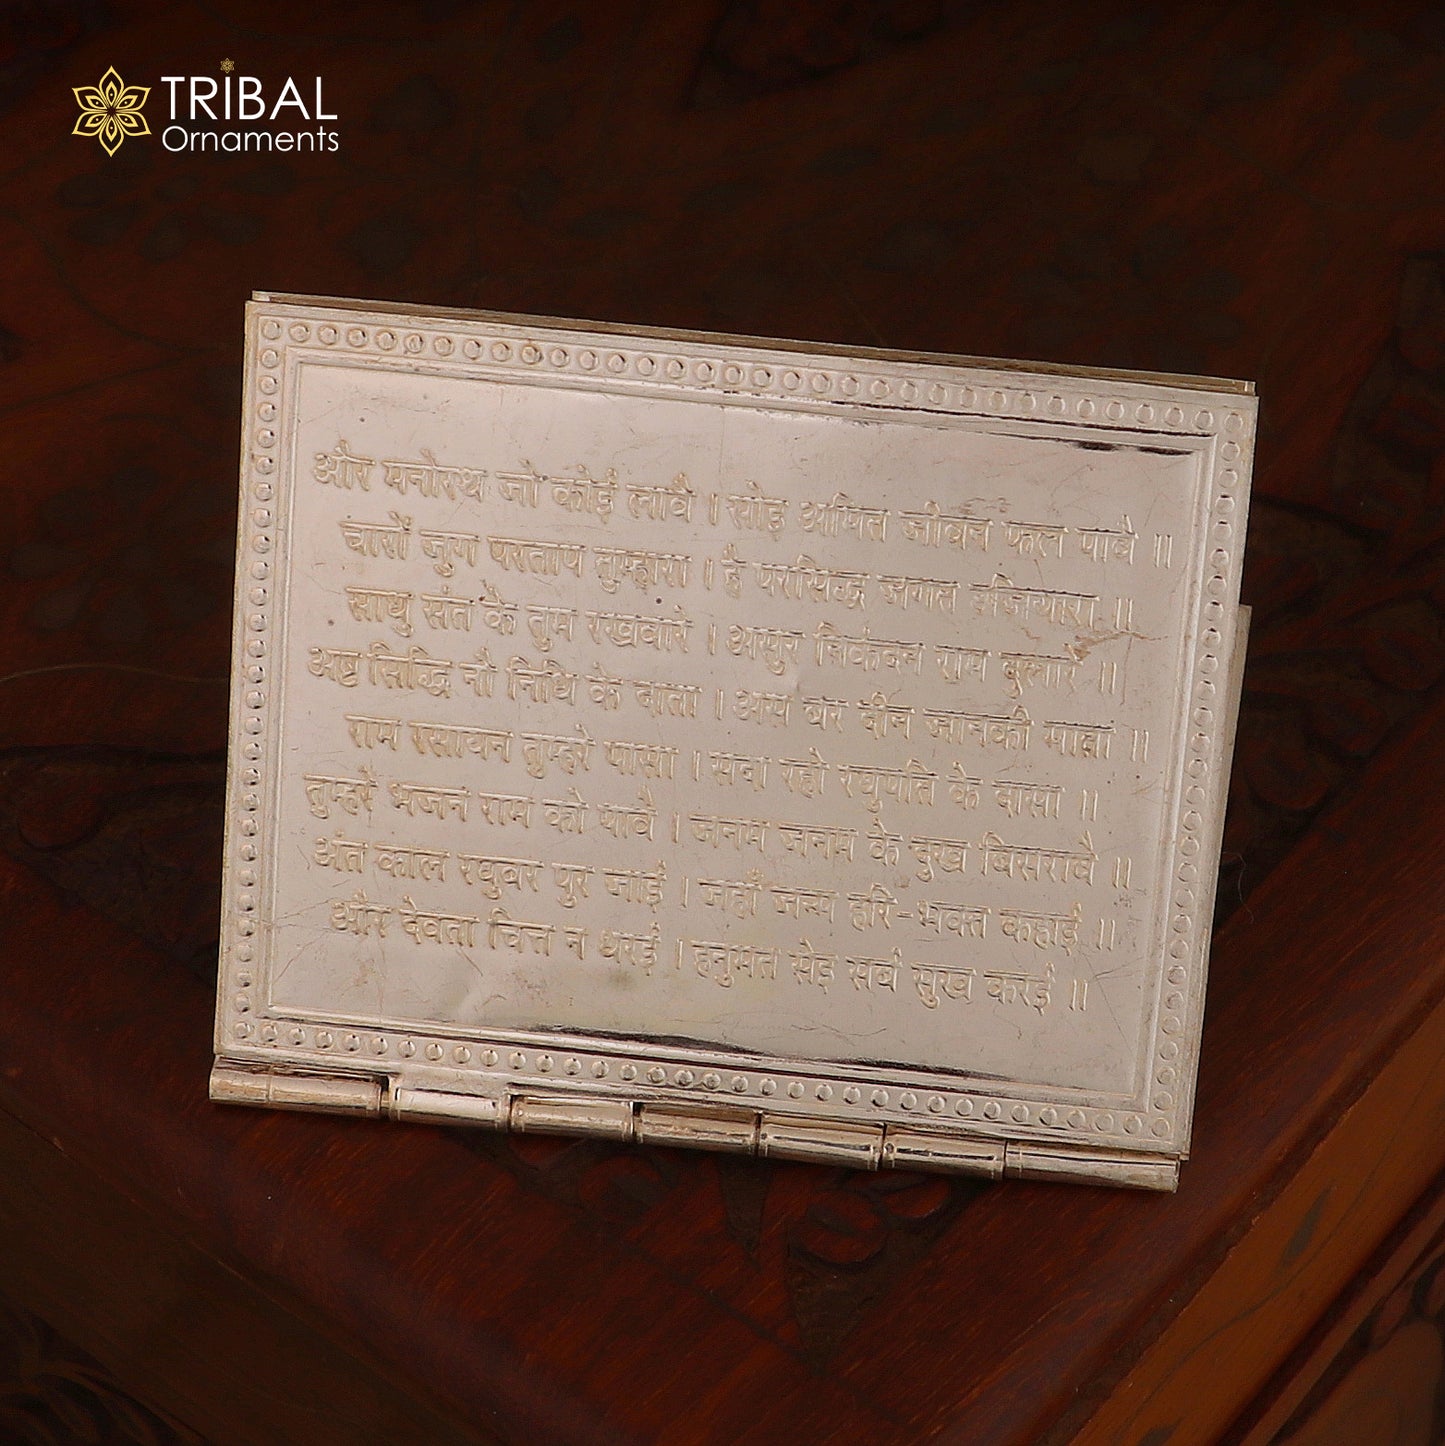 TRIBAL
Ornaments
और मनोरथ जो कोई लावै । सोइ अमित जीवन फल पावै ॥
चारों जुग परताप तुम्हारा । है परसिद्ध जगत उजियारा ॥
साधु संत कै तुम रखवारे । असुर निकंदन राम दुलारे ॥
अष्ट सिद्धि नौ निधि के दाता । अस बर दीन जानकी माता ॥
राम रसायन तुम्हरे पासा । सदा रहो रघुपति के दासा ॥
तुम्हरे भजन राम को पावै । जनम जनम के दुख बिसरावै ॥
अंत काल रघुवर पुर जाई । जहाँ जन्म हरि-भक्त कहाई ॥
और देवता चित्त न धरई । हनुमत सेइ सर्ब सुख करई ॥